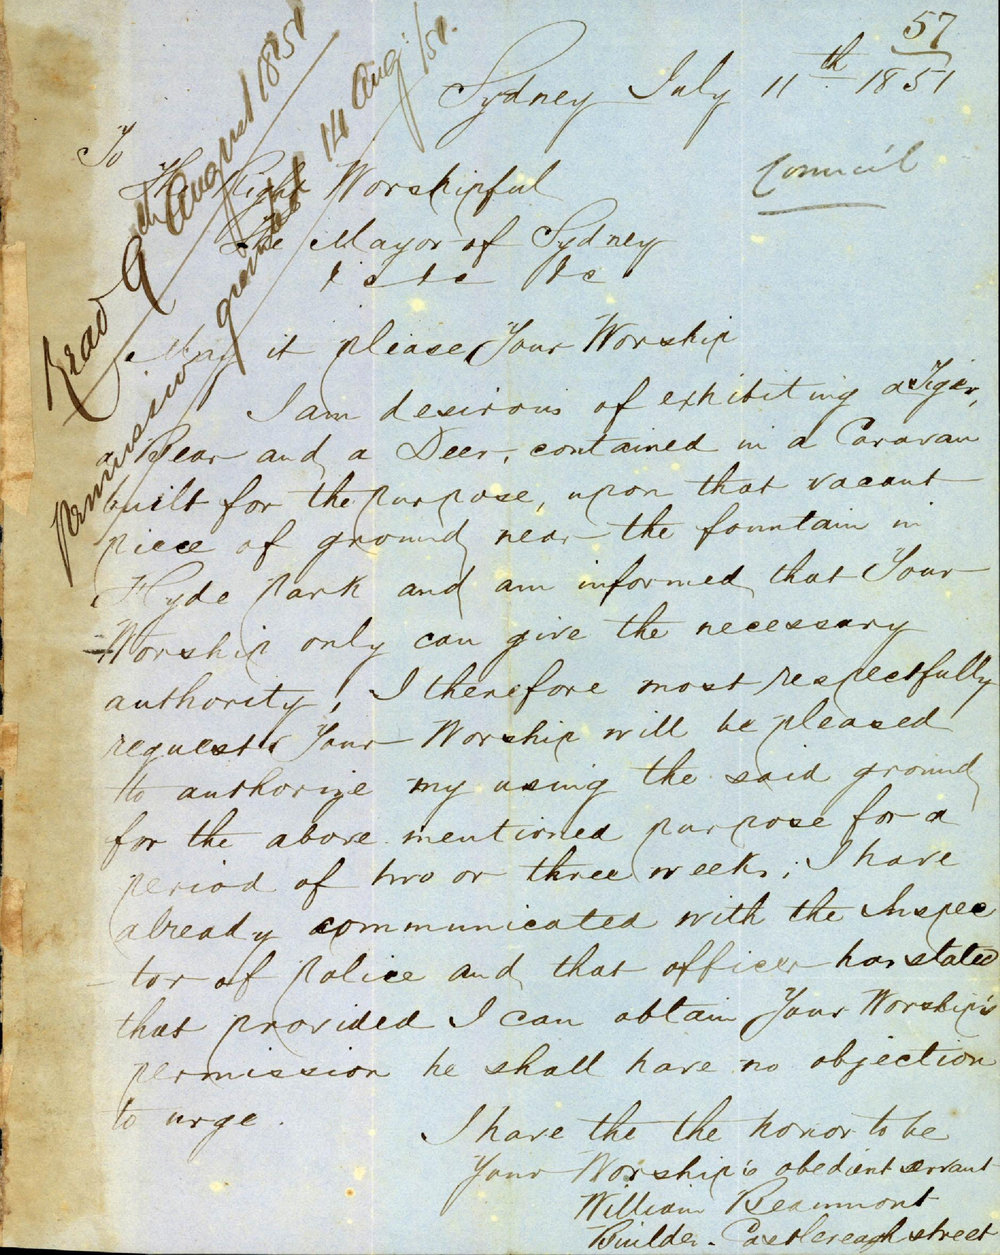 57
Sydney July 11th 1851
Council
To
The Right Worshipful
The Mayor of Sydney
&c &c &c
Read 9th August 1851
permission granted 14 Aug /51.
May it please Your Worship
I am desirous of exhibiting a Tiger,
a Bear and a Deer, contained in a Caravan
built for the purpose, upon that vacant
piece of ground near the fountain in
Hyde Park and am informed that Your
Worship only can give the necessary
authority, I therefore most respectfully
request Your Worship will be pleased
to authorize my using the said ground
for the above mentioned purpose for a
period of two or three weeks; I have
already communicated with the Inspec
tor of Police and that officer has stated
that provided I can obtain Your Worship's
permission he shall have no objection
to urge.
I have the the honor to be
Your Worship's obedient servant
William Beaumont
Builder. Castlereagh street